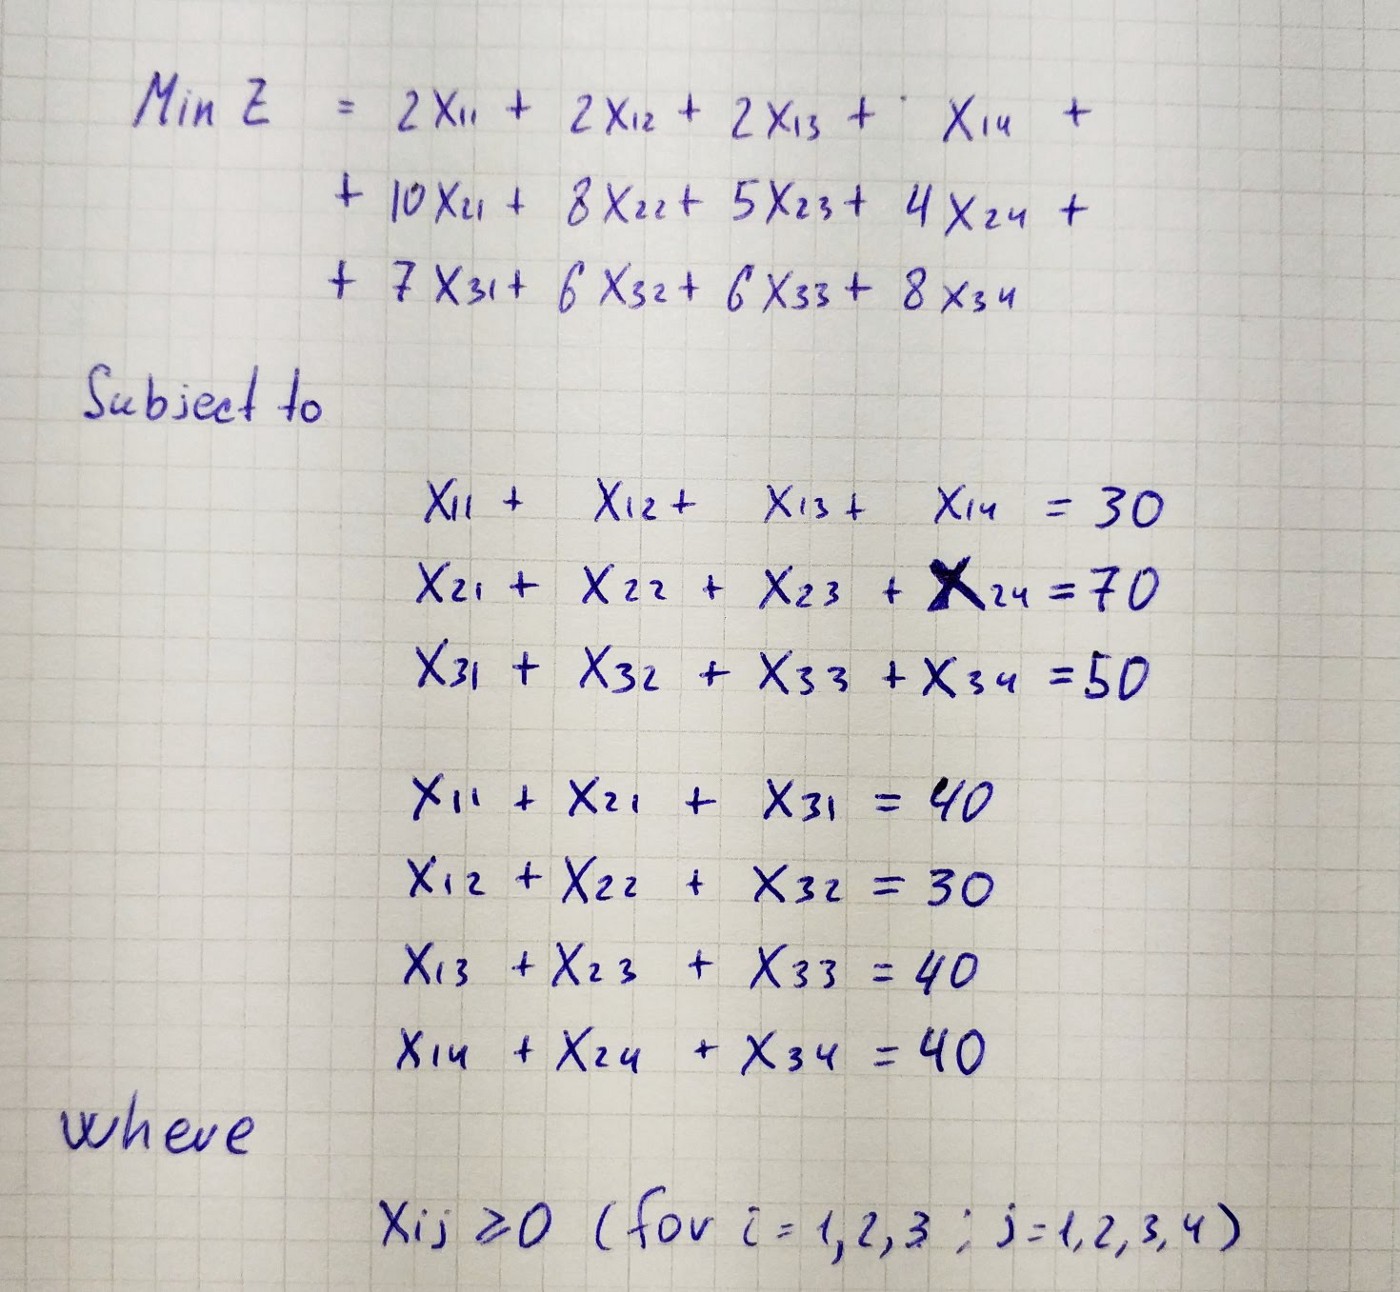 Min Z = 2X11 + 2X12 + 2X13 + X14 +
+ 10X21 + 8X22 + 5X23 + 4X24 +
+ 7X31 + 6X32 + 6X33 + 8X34
Subject to
X11 + X12 + X13 + X14 = 30
X21 + X22 + X23 + X24 = 70
X31 + X32 + X33 + X34 = 50
X11 + X21 + X31 = 40
X12 + X22 + X32 = 30
X13 + X23 + X33 = 40
X14 + X24 + X34 = 40
where
Xij ⩾ 0 (for i = 1,2,3 ; j = 1,2,3,4)